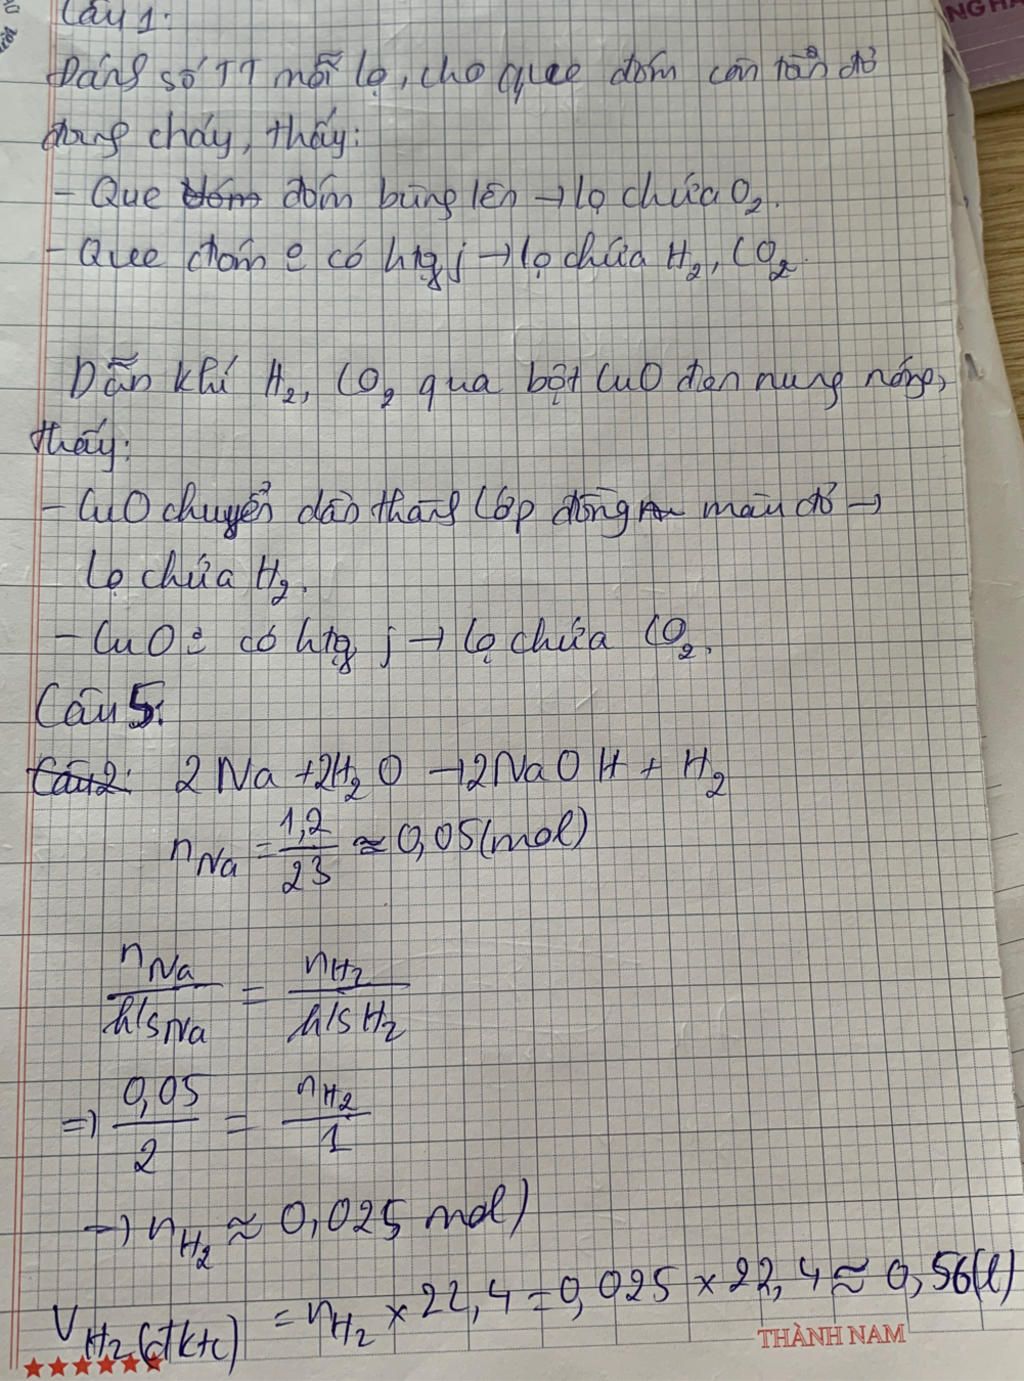 Câu 1:
Đánh số TT mỗi lọ, cho que đóm còn tàn đỏ
đang cháy, thấy:
- Que đóm bùng lên → lọ chứa O₂.
- Quee đóm e có htg j → lọ chứa H₂, CO₂.
Dẫn khí H₂, CO₂ qua bột CuO đen nung nóng,
thấy:
- CuO chuyển dần thành lớp đồng màu đỏ →
lọ chứa H₂.
- CuO e có htg j → lọ chứa CO₂.
Câu 5:
Câu 2: 2Na + 2H₂O → 2NaOH + H₂
n_Na = 1,2/23 ≈ 0,05 (mol)
n_Na/h/s_Na = n_H₂/h/s H₂
=> 0,05/2 = n_H₂/1
→ n_H₂ ≈ 0,025 mol)
V_H₂(đktc) = n_H₂ × 22,4 = 0,025 × 22,4 ≈ 0,56(l)
THÀNH NAM